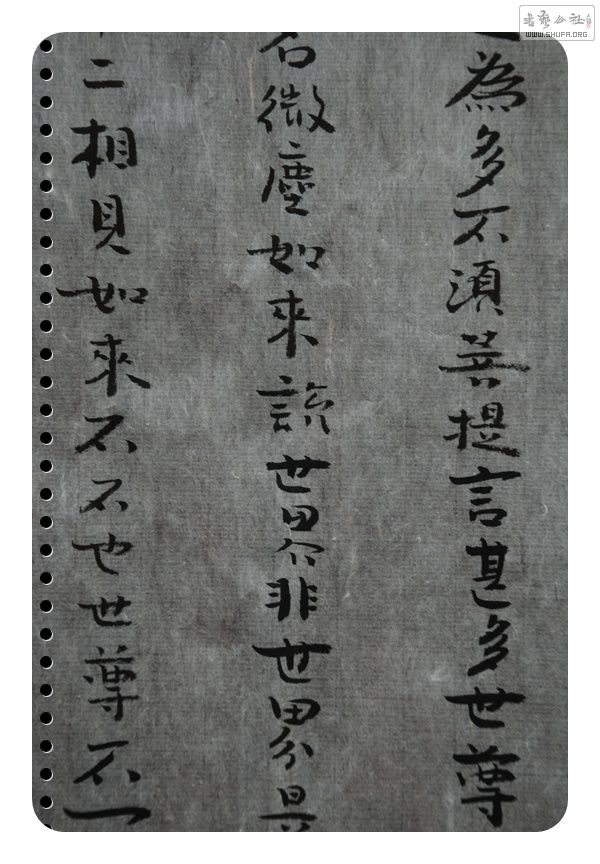 書藝公社
WWW.SHUFA.ORG
為多不須菩提言甚多世尊
名微塵如來說世界非世界是
二相見如來不不也世尊不